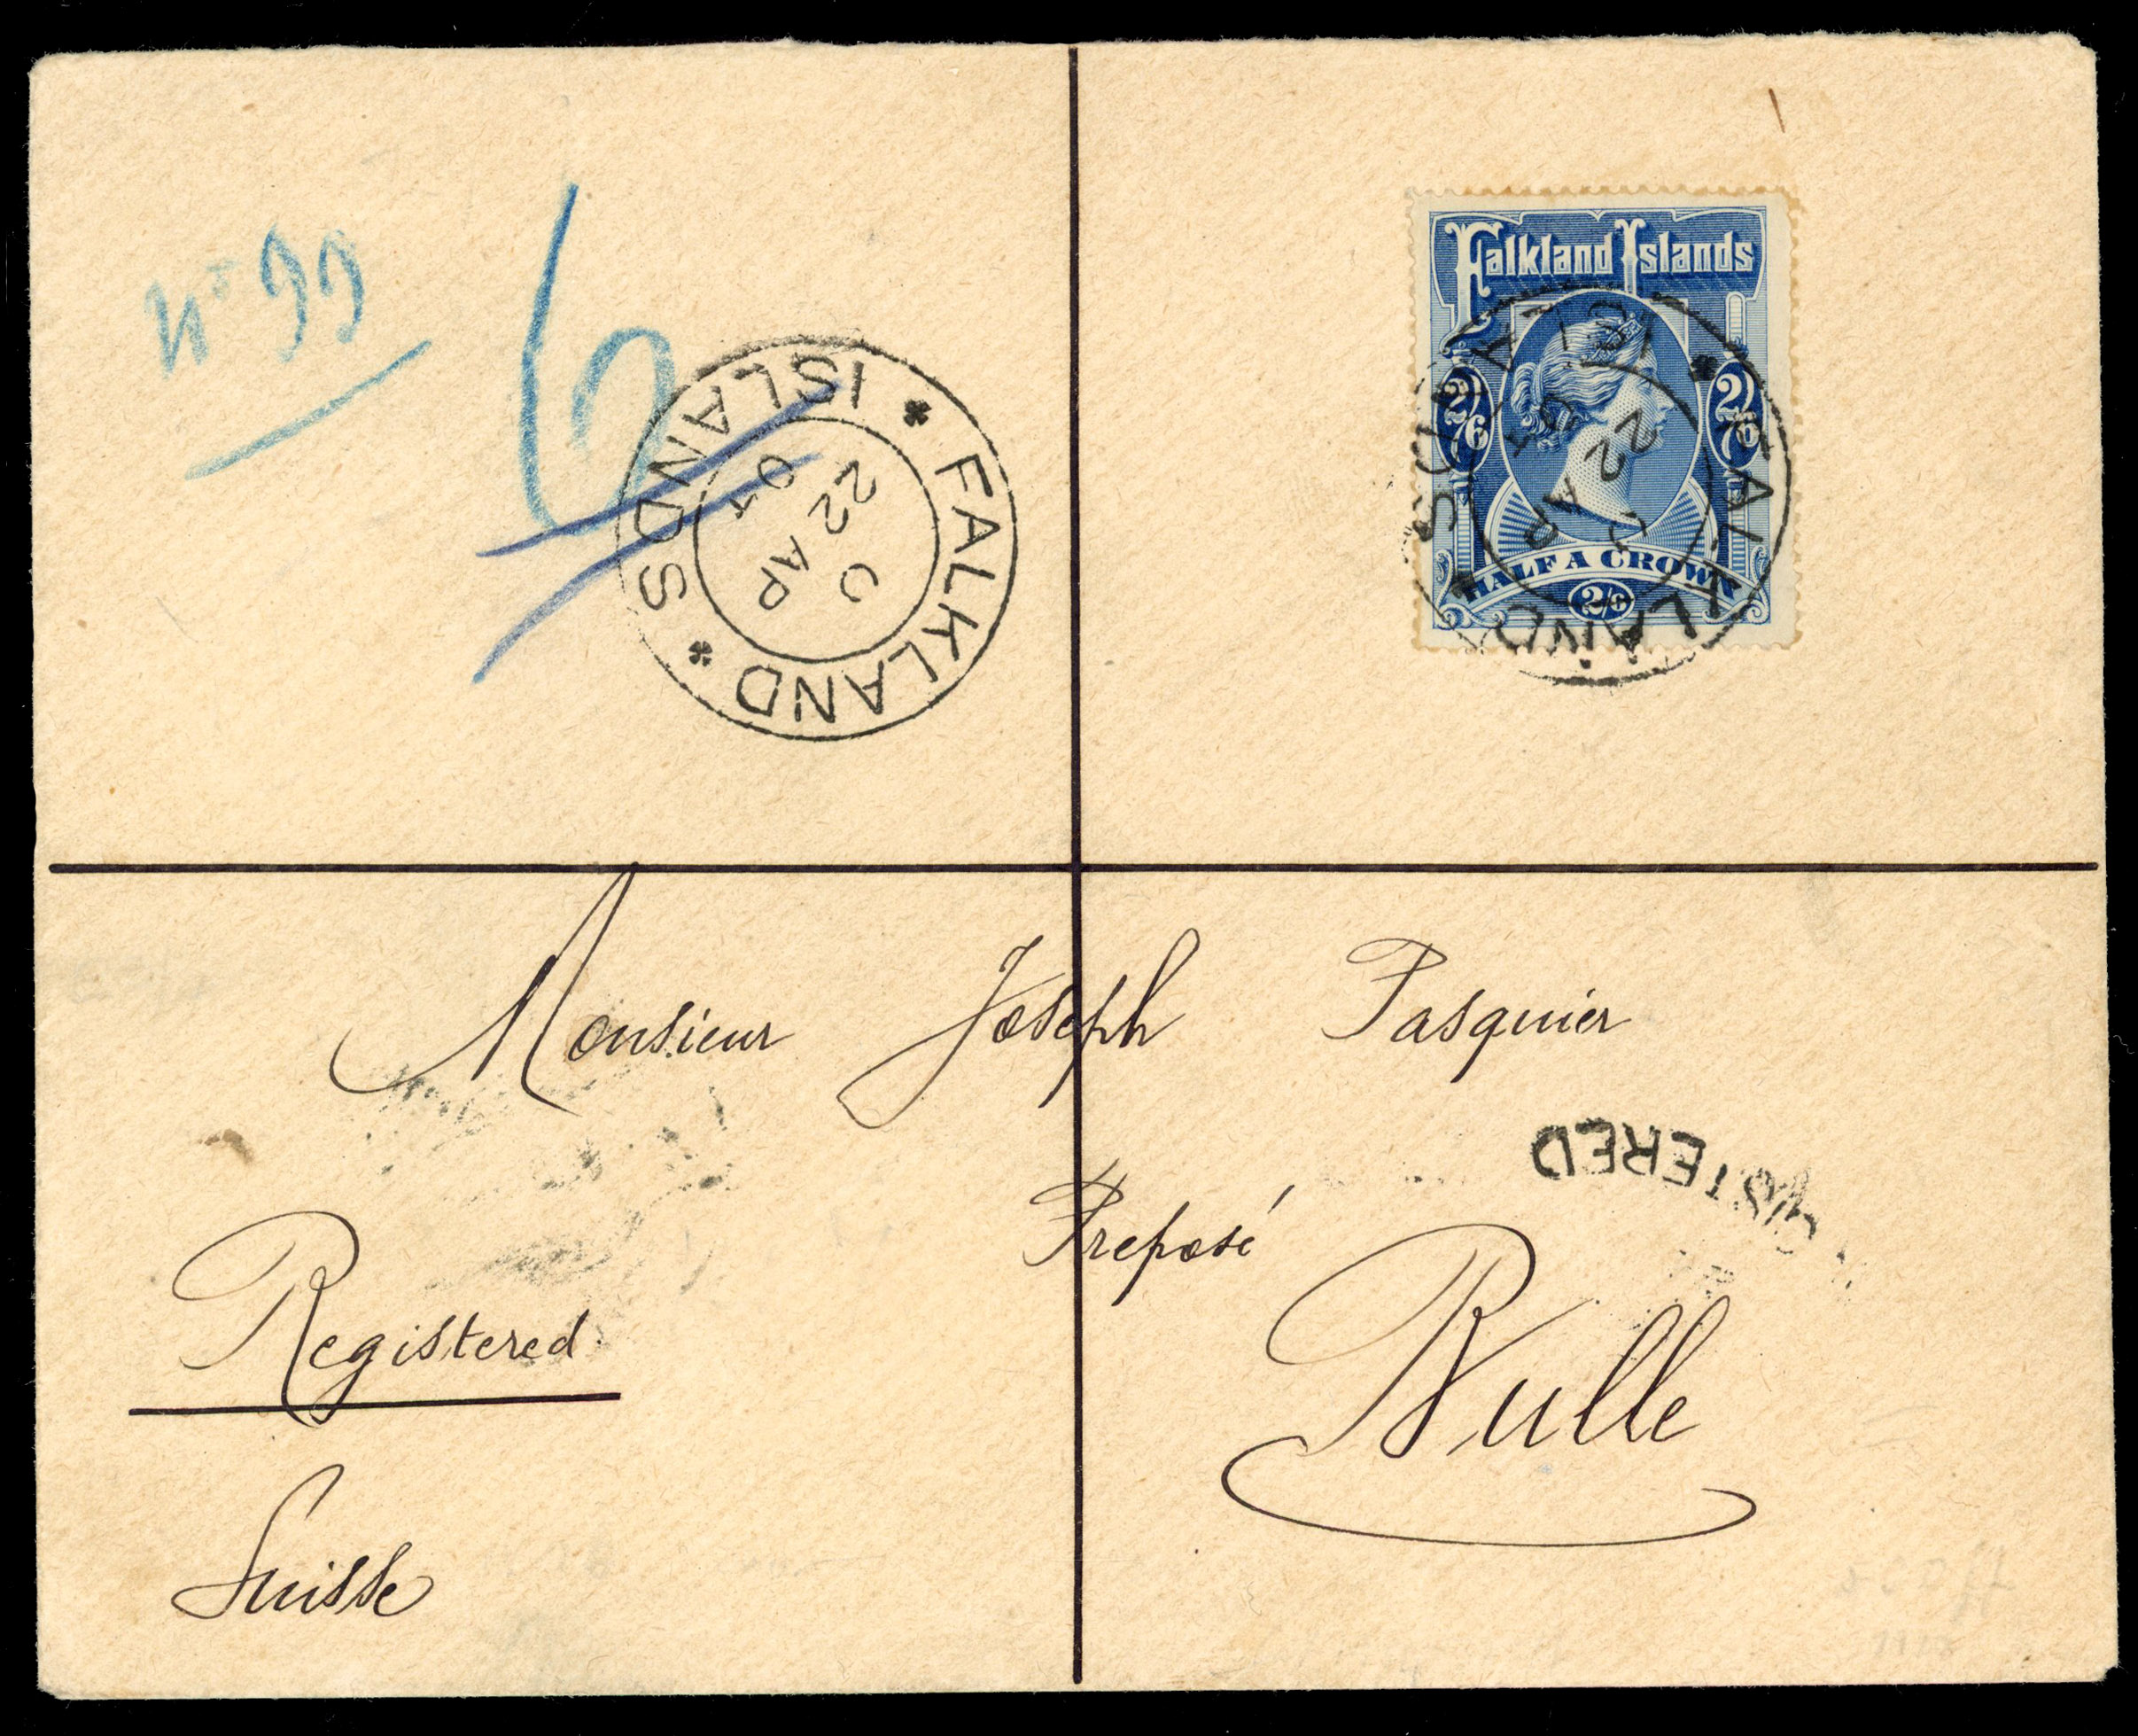 Nº 99
6
FALKLAND ISLANDS
C
22 AP
Falkland Islands
2/6 2/6
HALF A CROWN
2/6
FALKLAND ISLANDS
C
22 AP
Monsieur Joseph Pasquier
Preposé
Bulle
Registered
Suisse